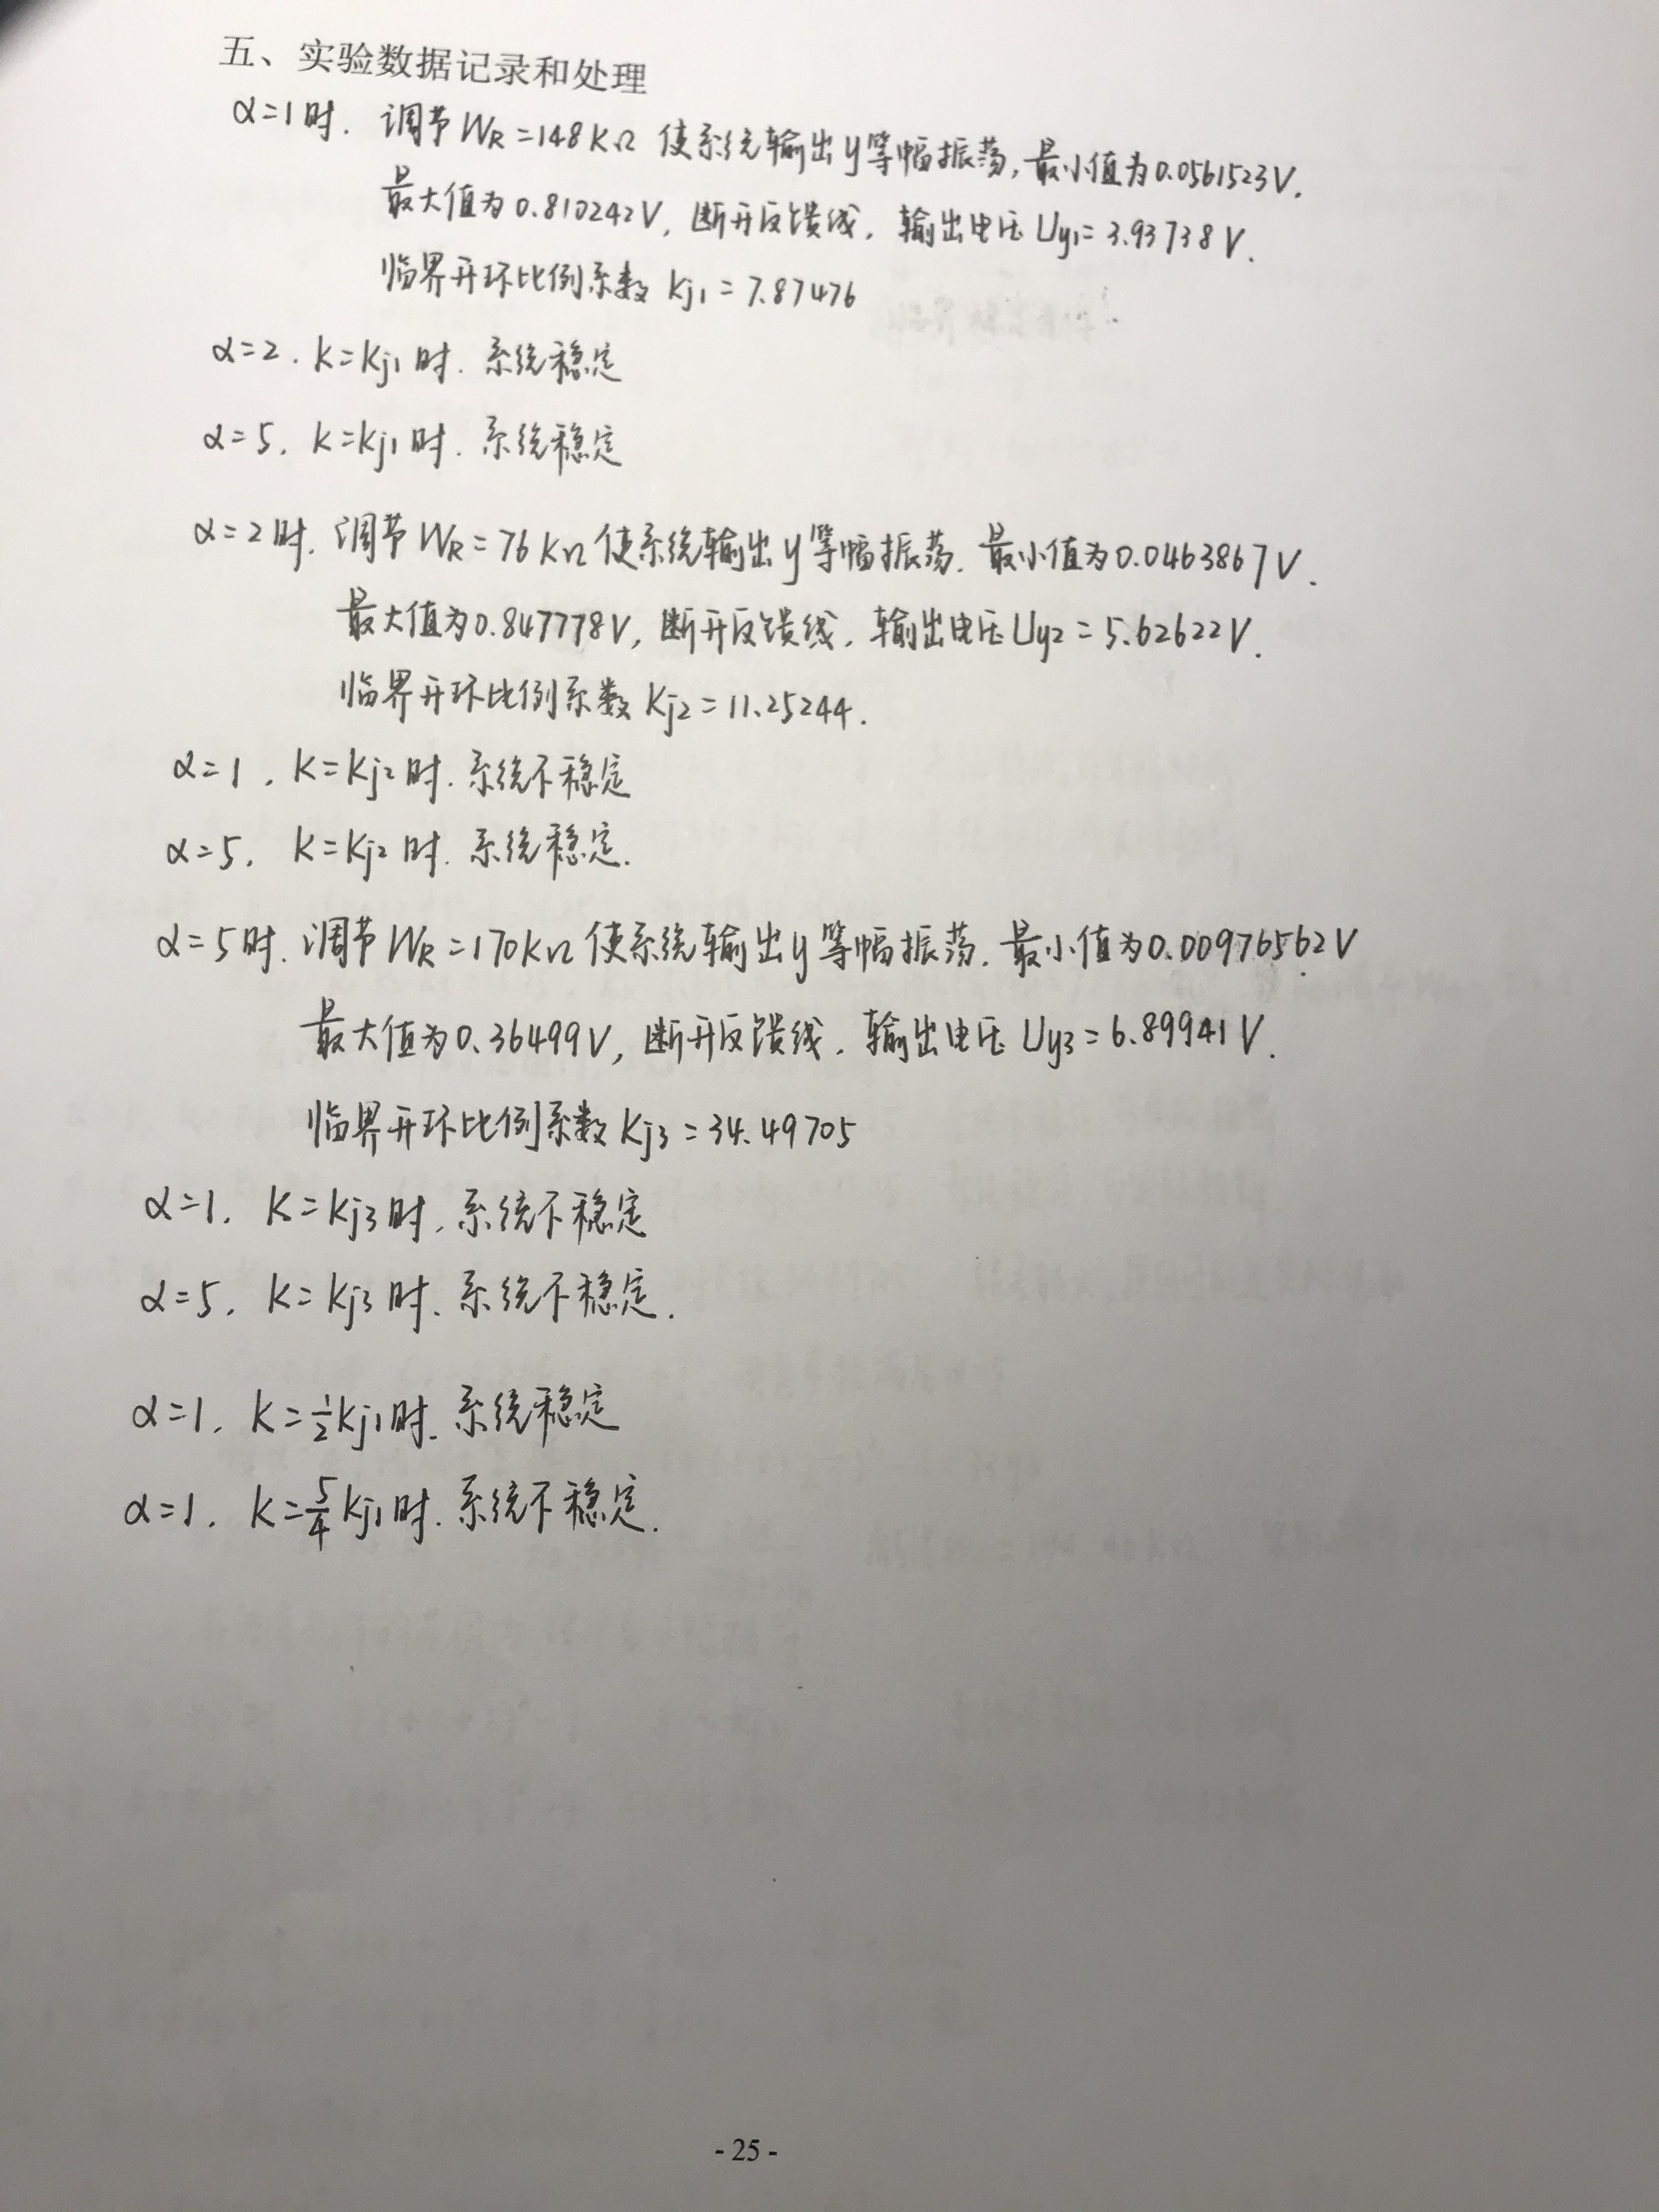 五、实验数据记录和处理
α=1时. 调节WR=148KΩ 使系统输出y等幅振荡,最小值为0.0561523V.
最大值为0.810242V, 断开反馈线, 输出电压Uy1=3.93738V.
临界开环比例系数 Kj1=7.87476
α=2. K=Kj1时. 系统稳定
α=5. K=Kj1时. 系统稳定
α=2时. 调节WR=76KΩ使系统输出y等幅振荡. 最小值为0.0463867V.
最大值为0.847778V, 断开反馈线, 输出电压Uy2=5.62622V.
临界开环比例系数Kj2=11.25244.
α=1, K=Kj2时. 系统不稳定
α=5, K=Kj2时. 系统稳定.
α=5时. 调节WR=170KΩ使系统输出y等幅振荡. 最小值为0.00976562V
最大值为0.36499V, 断开反馈线, 输出电压Uy3=6.89941V.
临界开环比例系数Kj3=34.49705
α=1. K=Kj3时, 系统不稳定
α=5. K=Kj3时. 系统不稳定.
α=1. K=1/2Kj1时. 系统稳定
α=1. K=5/4Kj1时. 系统不稳定.
- 25 -